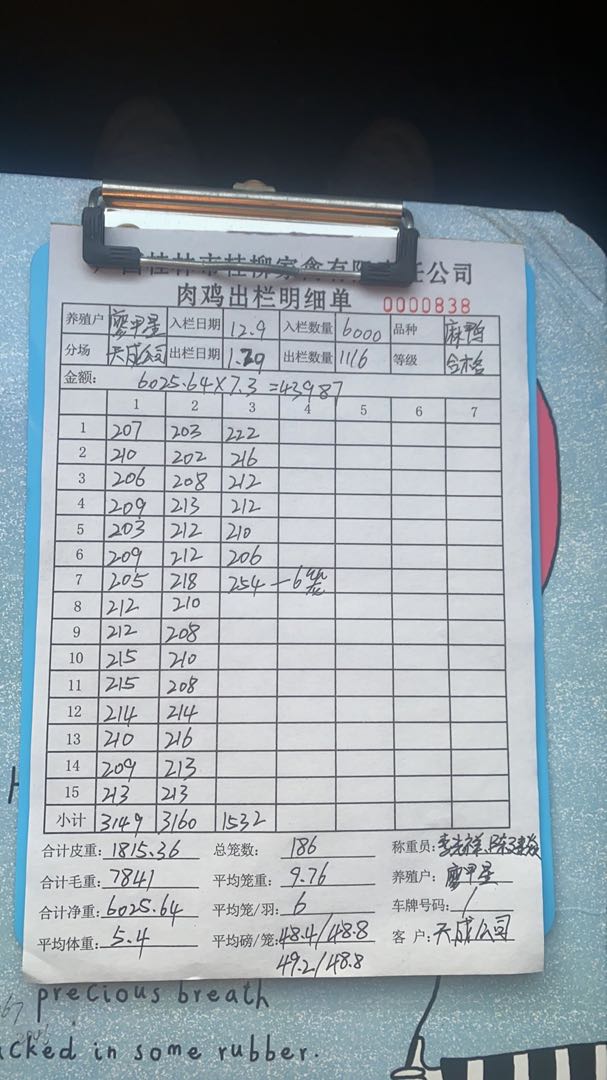 广西桂林市桂柳家禽有限责任公司
肉鸡出栏明细单 0000838
养殖户 廖甲星 入栏日期 12.9 入栏数量 6000 品种 麻鸭
分场 天成公司 出栏日期 1.29 出栏数量 1116 等级 合格
金额: 6025.64×7.3=43987
1 2 3 4 5 6 7
1 207 203 222
2 210 202 216
3 206 208 212
4 209 213 212
5 203 212 210
6 209 212 206
7 205 218 254 —6笼
8 212 210
9 212 208
10 215 210
11 215 208
12 214 214
13 210 216
14 209 213
15 213 213
小计 3149 3160 1532
合计皮重: 1815.36 总笼数: 186 称重员:
合计毛重: 7841 平均笼重: 9.76 养殖户: 廖甲星
合计净重: 6025.64 平均笼/羽: 6 车牌号码: /
平均体重: 5.4 平均磅/笼: 48.4/48.8 客 户: 天成公司
49.2/48.8
precious breath
cked in some rubber.